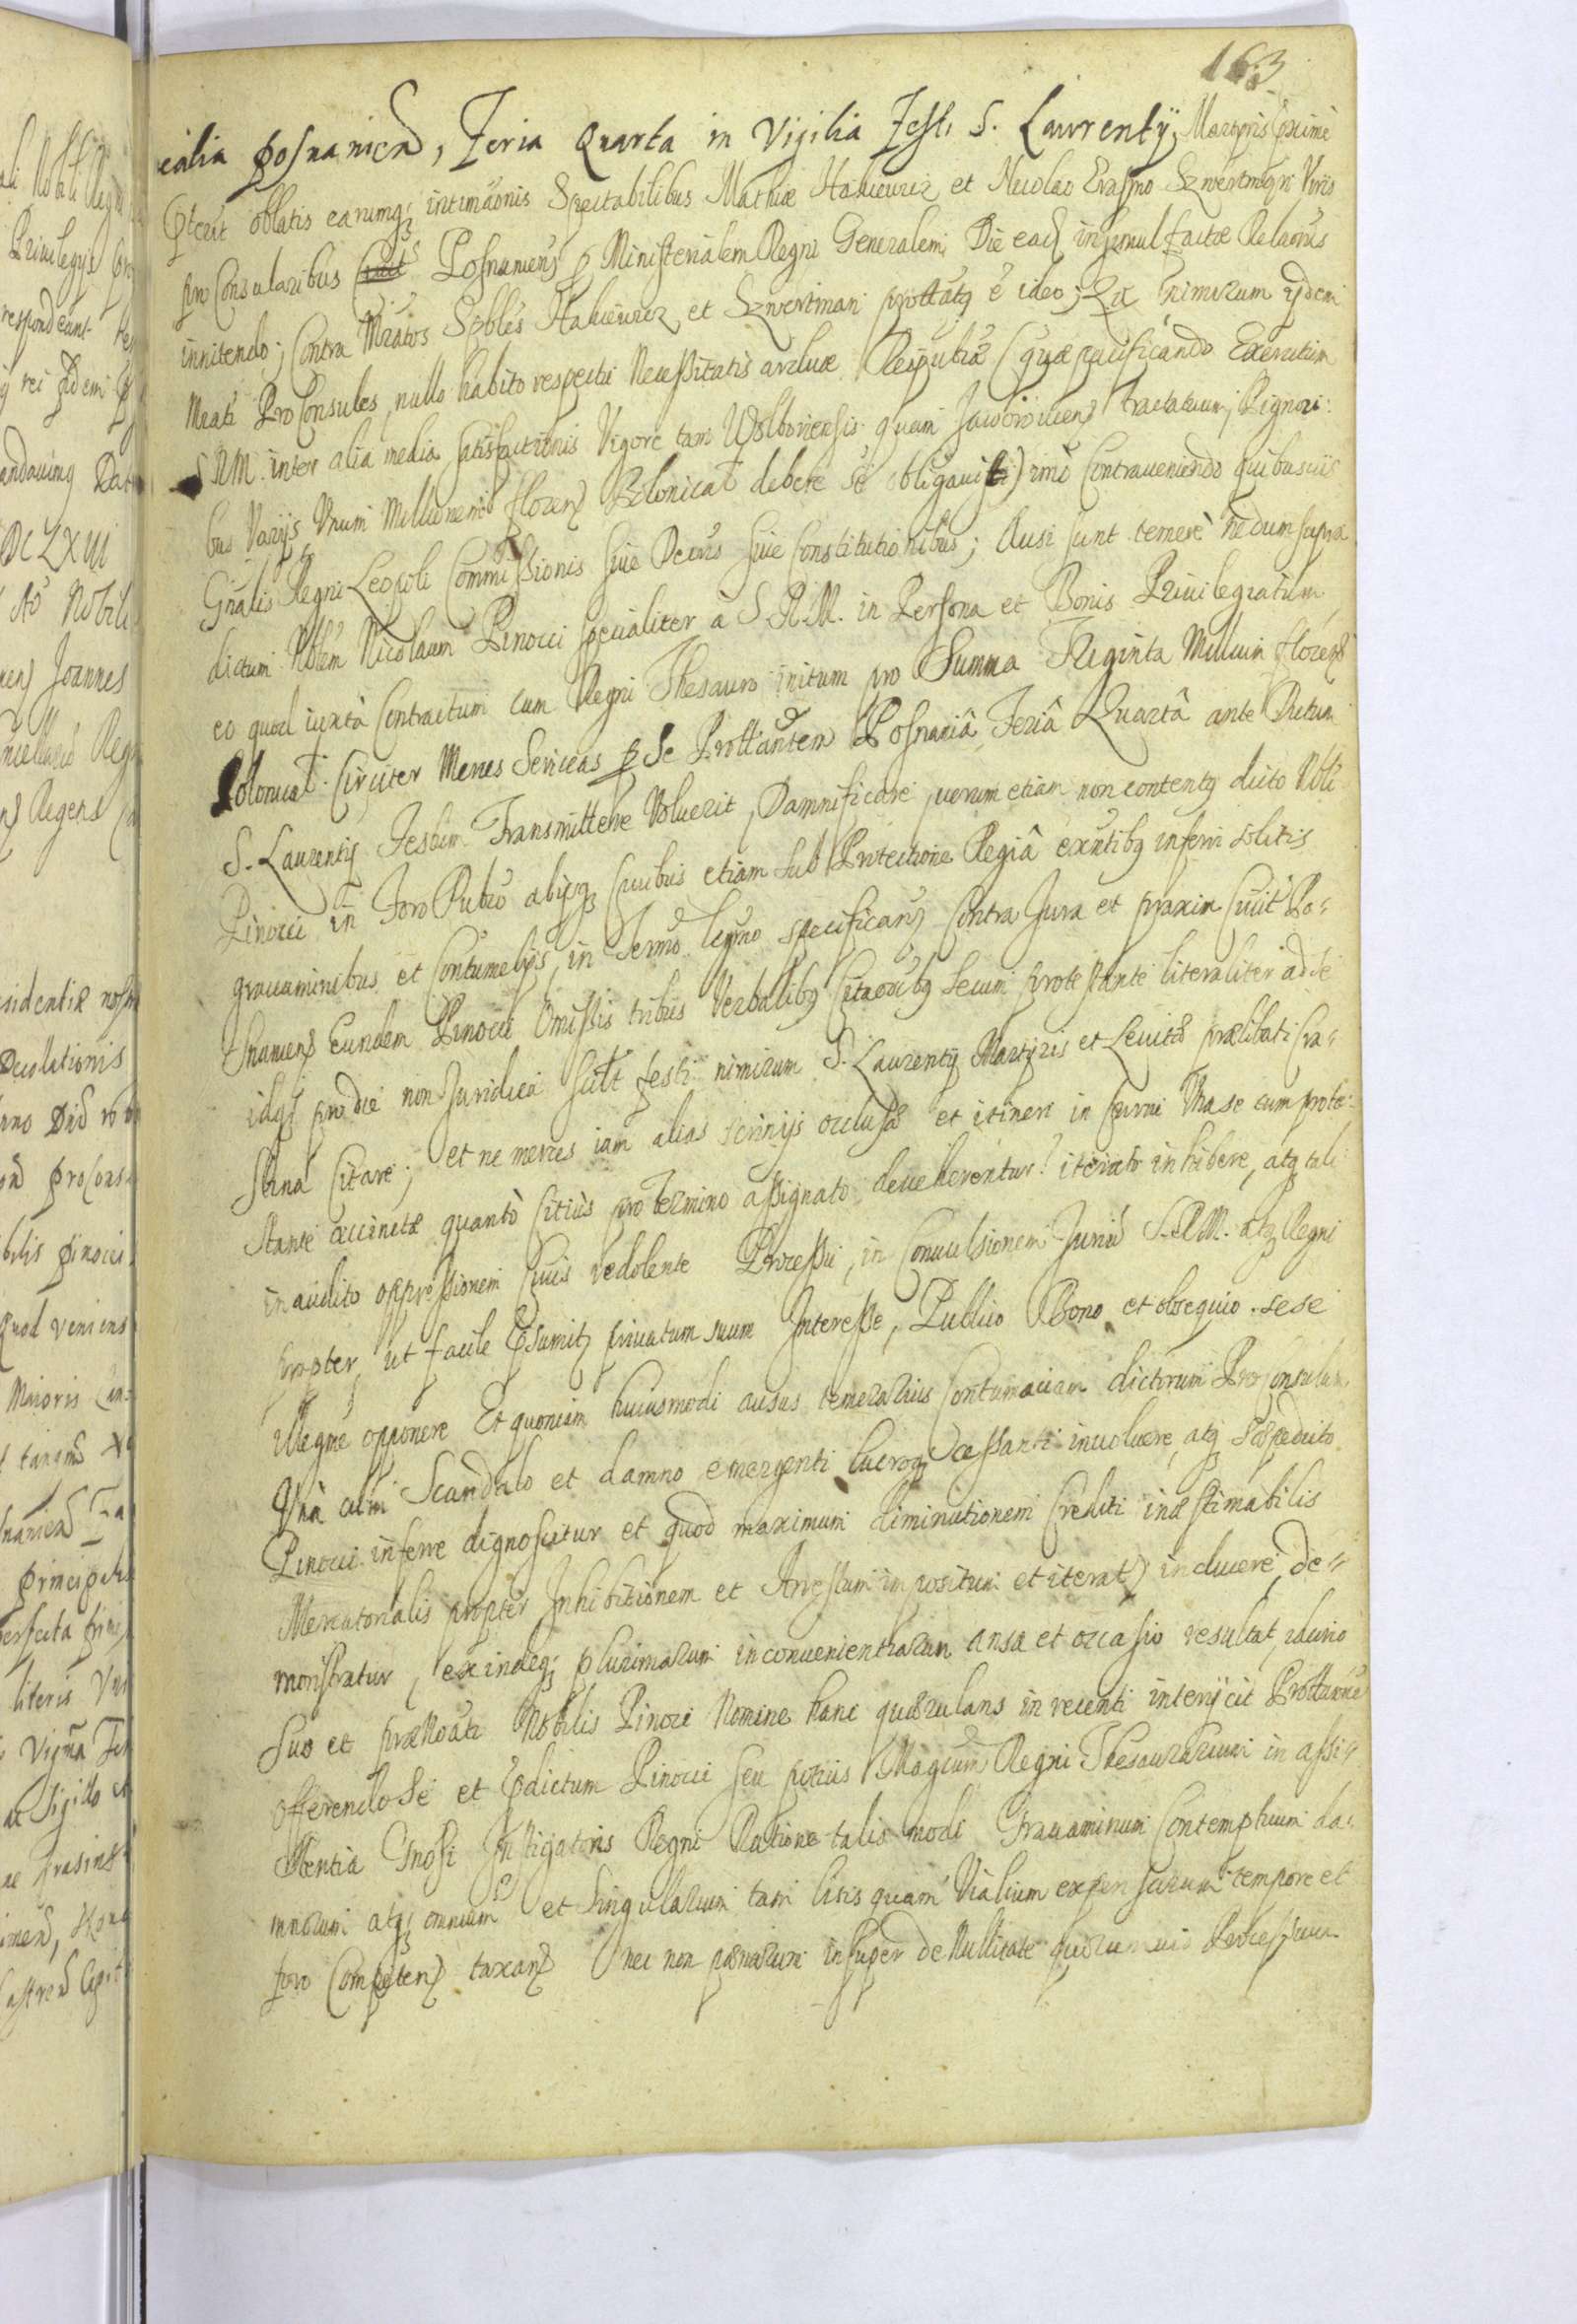 163
cialia Posnanien, Feria Quarta in Vigilia Festi S. Laurentij Martyris proxime
oblatis earumq; intimaonis Spectabilibus Mathia Hakiewicz et Nicolao Erasmo Szwertman Viris
pro Consularibus Posnaniens p Ministerialem Regni Generalem Die ead insemul factæ Relaonis
innitendo; Contra Mratos Spbles Hakiewicz et Szwertman prottatq e ideo; Qa nimirum ijdem
Mrati Pro Consules, nullo habito respectu Necessitatis arduæ Reipublæ (quæ pacificando Exercitum
S RM. inter alia media satisfactionis Vigore tam Wolboriensis quam Jaworowiens Tractatuum, Pignori-
bus Varijs Unum Millionem florens Polonical debere se obligauit) imo Contraueniendo quibusuis
Gnalis Regni Leopoli Commissionis siue Decris siue Constitutionibus; Ausi sunt temerè nedum supra
dictum Noblem Nicolaum Pinocci specialiter à S. R. M. in Persona et Bonis Priuilegiatum,
eo quod iuxtà Contractum cum Regni Thesauro initum pro Summa Triginta Millium florens
Polonical Circiter Merces Sericeas p Se Prottantem Posnaniâ Feriâ Quartâ ante Dictum
S. Laurentij Festum Transmittere Voluerit, Damnificare, uerum etiam non contentq dicto Nbli
Pinocci in Foro Publo alijsq Ciuibus etiam sub Protectione Regiâ exntibq inferri solitis
grauaminibus et Contumelijs, in Termo legmo specificans Contra Jura et praxim Ciuit Po-
snaniens Eundem Pinocci Omissis tribus Verbalibq Citaonibq Secum protestante literaliter ad se
idq; pro die non Juridica scilt festi nimirum S. Laurentij Martyris et Leuitæ prælibati Cra-
stina Citare; et ne merces iam alias scrinijs occlusæ et itineri in Curru Una se cum prote-
stante accinctæ quantò Citiùs pro Termino assignato deueherentur iterato inhibere, atq tali
inaudito oppressionem Ciuis redolente Processu, in Conuulsionem Jurium S.R.M. atq Regni
propter ut facile psumitq priuatum suum Interesse, Publico Bono et obsequio sese
illegme opponere Et quoniam huiusmodi ausus temerarius Contumaciam dictorum Pro Consulum,
Unà cum Scandalo et damno emergenti lucroq Cessanti inuoluere, atq Sæpedicto
Pinocci inferre dignoscitur et quod maximum diminutionem Crediti inæstimabilis
Mercatorialis propter Inhibitionem et Arrestum impositum et iterat) inducere, de-
monstratur, exindeq; plurimarum inconuenientiarum ansa et occasio resultat, idcirco
Suo et prænoati Nobilis Pinoci Nomine hanc quærulans in recenti interijcit Prottaonem
offerendo Se et pdictum Pinocci seu potius Magcum Regni Thesaurarium in assi-
stentia Gnosi Instigatoris Regni Ratione talis modi Grauaminum Contemptuum da-
mnorum atq; omnium et Singularum tam litis quam Vialium expensarum tempore et
foro Competens taxans nec non pænarum insuper de Nullitate quorumuis Processuum